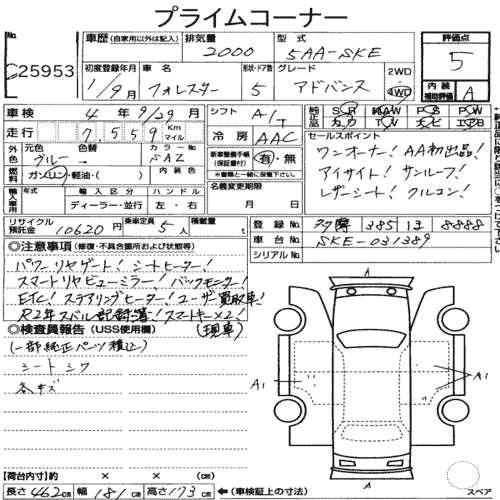 プライムコーナー
No.
25953
車歴 (自家用以外は記入) 排気量 2000 型式 5AA-SKE
評価点 5
初度登録年月 1/9月 車名 フォレスター 形状・ドア数 5 グレード アドバンス 2WD 4WD
内装補助評価 A
車検 4年 9/29月 シフト A/T
純正品 SR AW PS PW
走行 7,559 Km マイル 冷房 AAC
外色 元色 グレー → 色替 カラーNo. SAZ
セールスポイント
ワンオーナー! AA初出品!
アイサイト! サンルーフ!
レザーシート! クルコン!
新車整備手帳(保証書付) 有・無
※書類と一緒に保管下さい。
燃料 ガソリン・軽油・( ) 内装色
名義変更期限 月 日
輸入車用 年式 輸入区分 ハンドル
ディーラー・並行 左・右
リサイクル預託金 10620円 乗車定員 5人 積載量 t
登録No. 385 8888
車台No. SKE-031389
シリアルNo.
◎注意事項 (修復・不具合箇所および状態等)
パワーリヤゲート! シートヒーター!
スマートリヤビューミラー! バックモニター!
ETC! ステアリングヒーター! ユーザー買取車!
R2年スバル記録簿! スマートキー×2!
◎検査員報告 (USS使用欄) (現車)
(一部純正パーツ積込)
シートシワ
各キズ
A
A1
A1
A
【荷台内寸】約 × × (cm)
長さ 462cm 幅 181cm 高さ 173cm ←(車検証上の寸法)
スペア